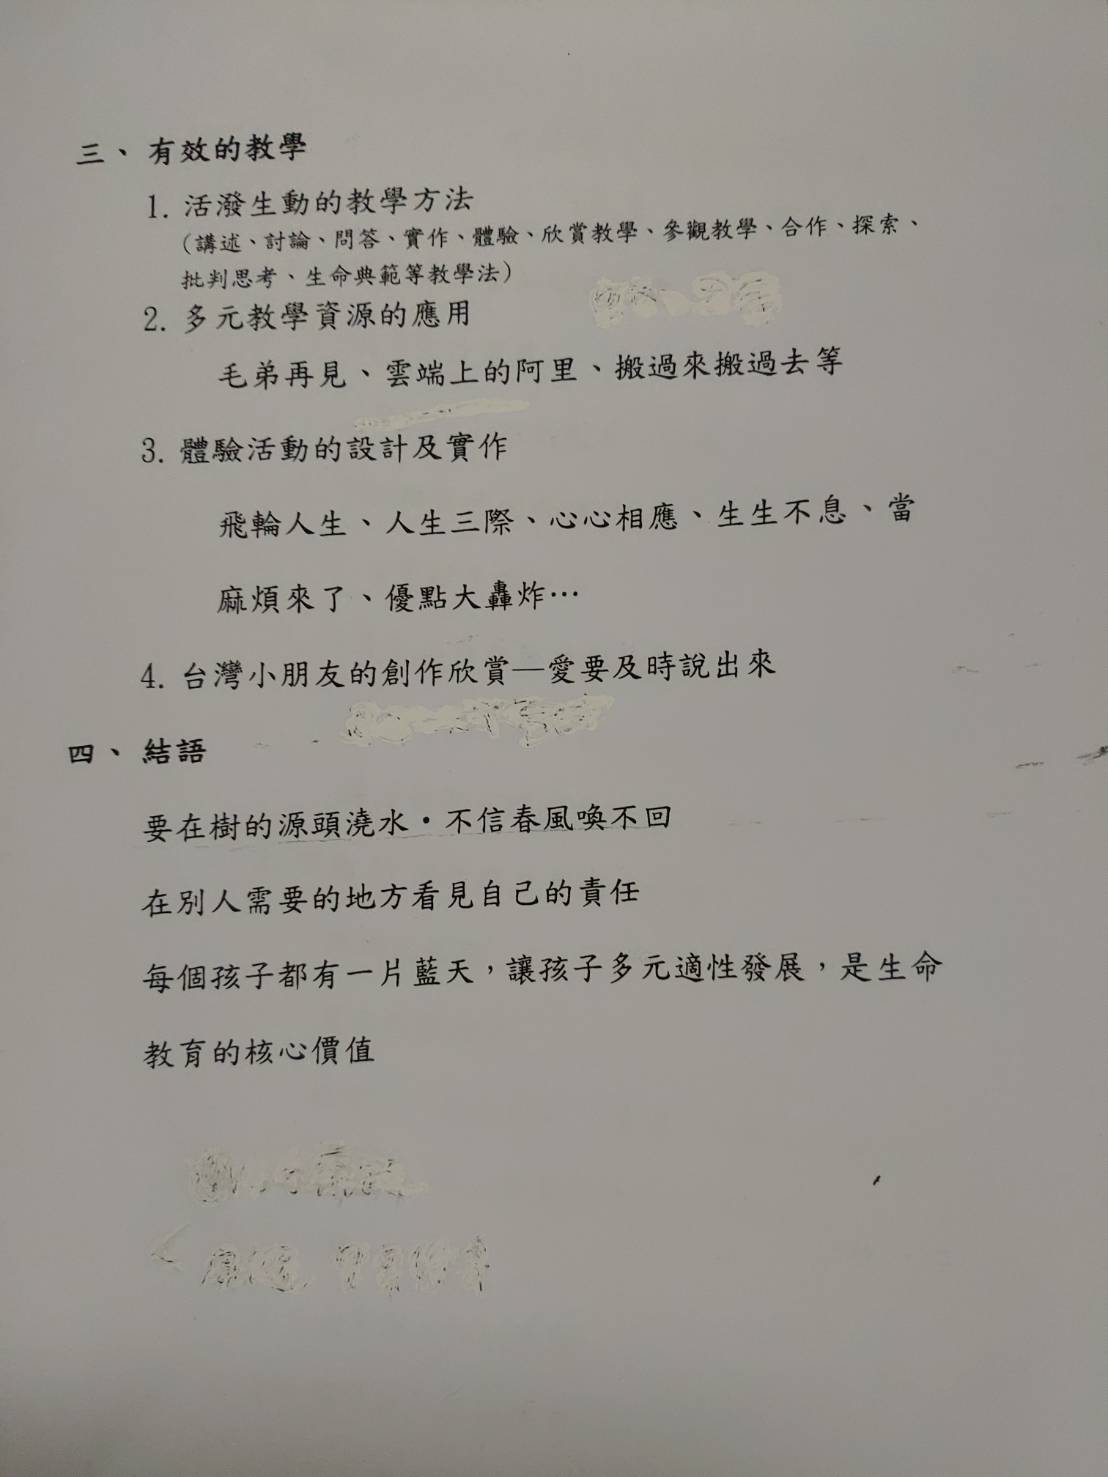 三、有效的教學
1. 活潑生動的教學方法
（講述、討論、問答、實作、體驗、欣賞教學、參觀教學、合作、探索、
批判思考、生命典範等教學法）
2. 多元教學資源的應用
毛弟再見、雲端上的阿里、搬過來搬過去等
3. 體驗活動的設計及實作
飛輪人生、人生三際、心心相應、生生不息、當
麻煩來了、優點大轟炸…
4. 台灣小朋友的創作欣賞—愛要及時說出來
四、結語
要在樹的源頭澆水・不信春風喚不回
在別人需要的地方看見自己的責任
每個孩子都有一片藍天，讓孩子多元適性發展，是生命
教育的核心價值